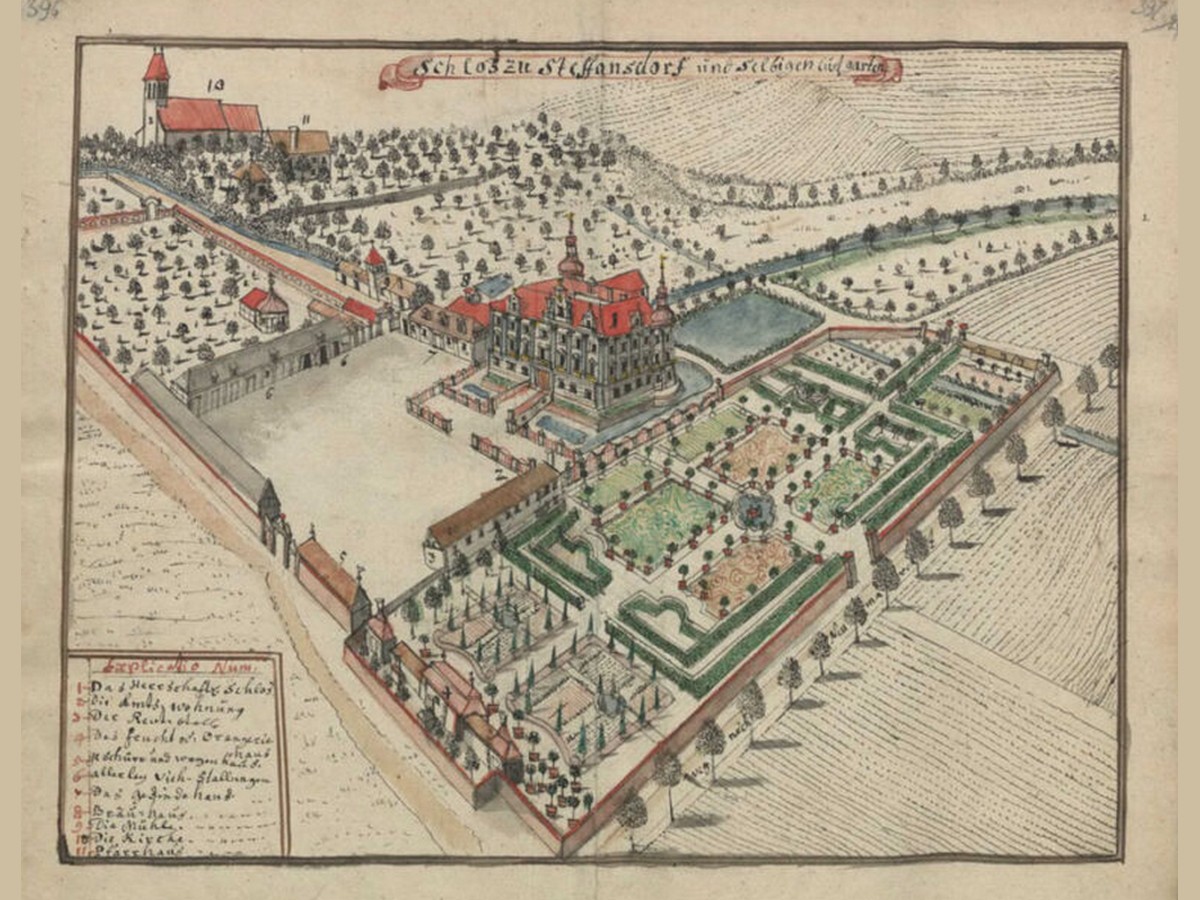 396
Schlos zu Steffansdorf und selbigen lust garten
10
11
1.
9
7
6
2
3
5
weg nach
Explicatio Num.
1 Das Herrschaftl. Schlos
2 die Amts wohnung
3 Der Reut stall
4 Das frucht od. Orangerie haus
5 scheure und wagen haus.
6 allerley Vieh-Stallungen
7 Das gesinde haus
8 Bräu-Haus
9 Die Mühle.
10 Die Kirche.
11 Pfarrhaus